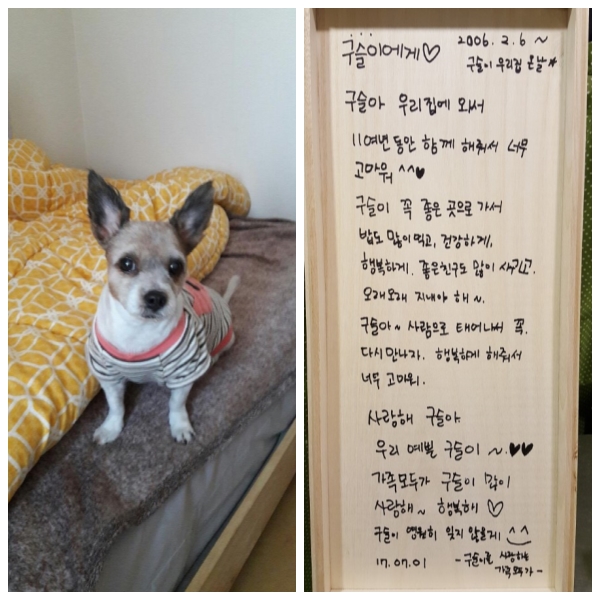 구슬이에게♡
2006. 2. 6 ~
구슬이 우리집 온날☆
구슬아 우리집에 와서
11여년 동안 함께 해줘서 너무
고마워 ^^♥
구슬이 꼭 좋은 곳으로 가서
밥도 많이먹고, 건강하게,
행복하게. 좋은친구도 많이 사귀고.
오래오래 지내야 해~.
구슬아~ 사람으로 태어나서 꼭.
다시만나자. 행복하게 해줘서
너무 고마워.
사랑해 구슬아.
우리 예쁜 구슬이 ~.♥♥
가족모두가 구슬이 많이
사랑해~ 행복해 ♡
구슬이 영원히 잊지 않을게 ^^
17.07.01
- 구슬이를 사랑하는
가족모두가 -